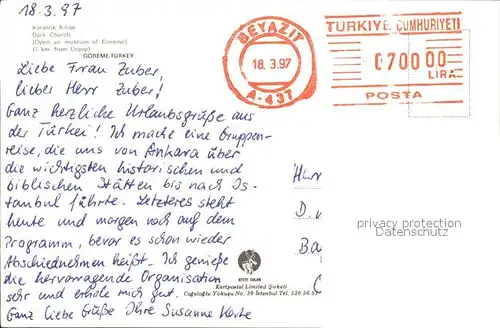 18.3.97
Karanlık Kilise
Dark Church,
(Open air museum of Goreme)
(2 km from Urgup)
GOREME-TURKEY
BEYAZIT
18.3.97
A-437
TÜRKİYE CUMHURİYETİ
070000
LIRA
POSTA
Liebe Frau Zuber,
lieber Herr Zuber!
Ganz herzliche Urlaubsgrüße aus
der Türkei! Ich mache eine Gruppen-
reise, die uns von Ankara über
die wichtigsten historischen und
biblischen Stätten bis nach Is-
tanbul führte. Letzteres steht
heute und morgen noch auf dem
Programm, bevor es schon wieder
Abschiednehmen heißt. Ich genieße
die hervorragende Organisation
sehr und erhole mich gut.
Ganz liebe Grüße Ihre Susanne Korte
Kartpostal Limited Şirketi
Cağaloğlu Yokuşu No. 39 İstanbul Tel. 526 66
privacy protection
oldthing.com